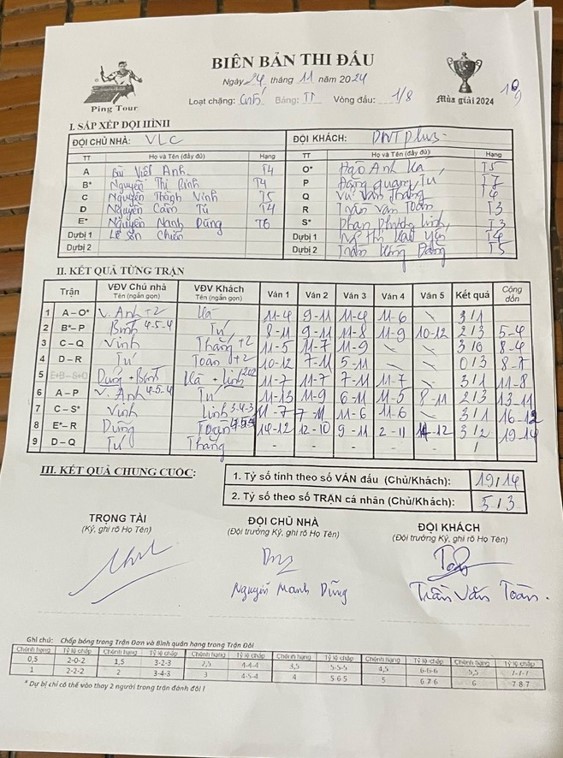 BIÊN BẢN THI ĐẤU
Ngày 24 tháng 11 năm 2024
Ping Tour
Loại chặng: Bảng: TT Vòng đấu: 1/8
Mùa giải 2024
I. SẮP XẾP ĐỘI HÌNH
ĐỘI CHỦ NHÀ: VLC ĐỘI KHÁCH: DNT Plus
TT Họ và Tên (đầy đủ) Hạng TT Họ và Tên (đầy đủ) Hạng
A Viết Anh T4 O* Anh Ka T5
B* Nguyễn Thị Bình T4 P Đặng Quang Tú T7
C Nguyễn Thành Vinh T5 Q Vũ Văn Thắng T6
D Nguyễn Cẩm Tú T4 R Trần Văn Toàn T3
E* Nguyễn Mạnh Dũng T6 S* Phan Phương Linh T3
Dự bị 1 Lê Sơn Dự bị 1 T4
Dự bị 2 Dự bị 2 Trần T5
II. KẾT QUẢ TỪNG TRẬN
Trận VĐV Chủ nhà Tên (ngắn gọn) VĐV Khách Tên (ngắn gọn) Ván 1 Ván 2 Ván 3 Ván 4 Ván 5 Kết quả Cộng dồn
1 A – O* V. Anh +2 Ka 11-4 9-11 11-4 11-6 \ 3/1
2 B* – P Bình 4-5-4 Tú 8-11 9-11 11-8 11-9 10-12 2/3 5-4
3 C – Q Vinh Thắng +2 11-5 11-7 11-9 \ \ 3/0 8-4
4 D – R Tú Toàn +2 10-12 7-11 5-11 \ \ 0/3 8-7
5 Dũng + Bình Ka + Linh 11-7 11-7 7-11 11-7 \ 3/1 11-8
6 A – P V. Anh 4-5-4 Tú 11-13 11-9 6-11 11-5 8-11 2/3 13-11
7 C – S* Vinh Linh 3-4-3 11-7 7-11 11-6 11-6 \ 3/1 16-12
8 E* – R Dũng Toàn 14-12 12-10 9-11 2-11 14-12 3/2 19-14
9 D – Q Tú Thắng - - - - - / -
III. KẾT QUẢ CHUNG CUỘC:
1. Tỷ số tính theo số VÁN đấu (Chủ/Khách): 19/14
2. Tỷ số theo số TRẬN cá nhân (Chủ/Khách): 5/3
TRỌNG TÀI ĐỘI CHỦ NHÀ ĐỘI KHÁCH
(Ký, ghi rõ Họ Tên) (Đội trưởng Ký, ghi rõ Họ Tên) (Đội trưởng Ký, ghi rõ Họ Tên)
Nguyễn Mạnh Dũng Trần Văn Toàn.
Ghi chú: Chấp bóng trong Trận Đơn và Bình quân hạng trong Trận Đôi
Chênh hạng Tỷ lệ chấp Chênh hạng Tỷ lệ chấp Chênh hạng Tỷ lệ chấp Chênh hạng Tỷ lệ chấp Chênh hạng Tỷ lệ chấp Chênh hạng Tỷ lệ chấp
0,5 2-0-2 1,5 3-2-3 2,5 4-4-4 3,5 5-5-5 4,5 6-6-6 5,5 7-7-7
1 2-2-2 2 3-4-3 3 4-5-4 4 5-6-5 5 6-7-6 6 7-8-7
* Dự bị chỉ có thể vào thay 2 người trong trận đánh đôi !